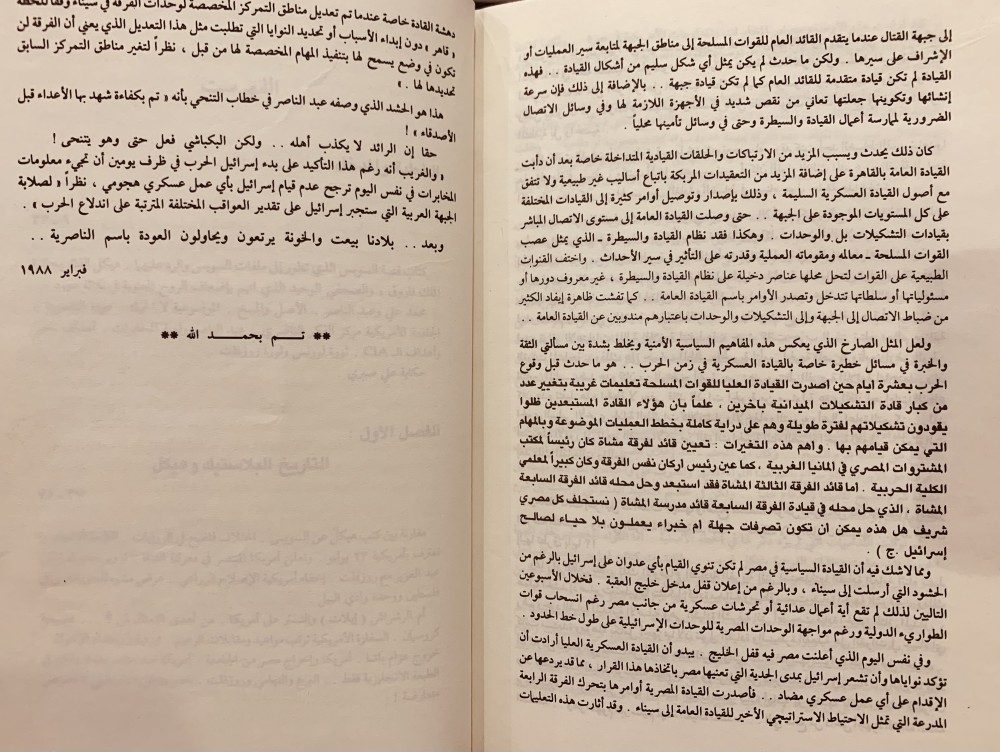 إلى جبهة القتال عندما يتقدم القائد العام للقوات المسلحة إلى مناطق الجبهة لمتابعة سير العمليات أو
الإشراف على سيرها . ولكن ما حدث لم يكن يمثل أي شكل سليم من أشكال القيادة . . فهذه
القيادة لم تكن قيادة متقدمة للقائد العام كما لم تكن قيادة جبهة . . بالإضافة إلى ذلك فإن سرعة
إنشائها وتكوينها جعلتها تعاني من نقص شديد في الأجهزة اللازمة لها وفي وسائل الاتصال
الضرورية لممارسة أعمال القيادة والسيطرة وحتى في وسائل تأمينها محلياً .
كان ذلك يحدث ويسبب المزيد من الارتباكات والحلقات القيادية المتداخلة خاصة بعد أن دأبت
القيادة العامة بالقاهرة على إضافة المزيد من التعقيدات المربكة باتباع أساليب غير طبيعية ولا تتفق
مع أصول القيادة العسكرية السليمة ، وذلك بإصدار وتوصيل أوامر كثيرة إلى القيادات المختلفة
على كل المستويات الموجودة على الجبهة . . حتى وصلت القيادة العامة إلى مستوى الاتصال المباشر
بقيادات التشكيلات بل والوحدات . وهكذا فقد نظام القيادة والسيطرة ـ الذي يمثل عصب
القوات المسلحة ـ معالمه ومقوماته العملية وقدرته على التأثير في سير الأحداث . واختفت القنوات
الطبيعية على القوات لتحل محلها عناصر دخيلة على نظام القيادة والسيطرة ، غير معروف دورها أو
مسئولياتها أو سلطاتها تتدخل وتصدر الأوامر باسم القيادة العامة . . كما تفشت ظاهرة إيفاد الكثير
من ضباط الاتصال إلى الجبهة وإلى التشكيلات والوحدات باعتبارهم مندوبين عن القيادة العامة . .
ولعل المثل الصارخ الذي يعكس هذه المفاهيم السياسية الأمنية ويخلط بشدة بين مسألتي الثقة
والخبرة في مسائل خطيرة خاصة بالقيادة العسكرية في زمن الحرب . . هو ما حدث قبل وقوع
الحرب بعشرة ايام حين اصدرت القيادة العليا للقوات المسلحة تعليمات غريبة بتغيير عدد
من كبار قادة التشكيلات الميدانية بآخرين ، علماً بان هؤلاء القادة المستبعدين ظلوا
يقودون تشكيلاتهم لفترة طويلة وهم على دراية كاملة بخطط العمليات الموضوعة وبالمهام
التي يمكن قيامهم بها . واهم هذه التغيرات : تعيين قائد لفرقة مشاة كان رئيساً لمكتب
المشتروات المصري في المانيا الغربية ، كما عين رئيس اركان نفس الفرقة وكان كبيراً لمعلمي
الكلية الحربية . أما قائد الفرقة الثالثة المشاة فقد استبعد وحل محله قائد الفرقة السابعة
المشاة ، الذي حل محله في قيادة الفرقة السابعة قائد مدرسة المشاة ( نستحلف كل مصري
شريف هل هذه يمكن ان تكون تصرفات جهلة ام خبراء يعملون بلا حياء لصالح
إسرائيل .ج ) .
ومما لاشك فيه أن القيادة السياسية في مصر لم تكن تنوي القيام بأي عدوان على إسرائيل بالرغم من
الحشود التي أرسلت إلى سيناء ، وبالرغم من إعلان قفل مدخل خليج العقبة . فخلال الأسبوعين
التاليين لذلك لم تقع أية أعمال عدائية أو تحرشات عسكرية من جانب مصر رغم انسحاب قوات
الطواريء الدولية ورغم مواجهة الوحدات المصرية للوحدات الإسرائيلية على طول خط الحدود .
وفي نفس اليوم الذي أعلنت مصر فيه قفل الخليج . يبدو أن القيادة العسكرية العليا أرادت أن
تؤكد نواياها وأن تشعر إسرائيل بمدى الجدية التي تعنيها مصر باتخاذها هذا القرار ، مما قد يردعها عن
الإقدام على أي عمل عسكري مضاد . . فأصدرت القيادة المصرية أوامرها بتحرك الفرقة الرابعة
المدرعة التي تمثل الاحتياط الاستراتيجي الأخير للقيادة العامة إلى سيناء . وقد أثارت هذه التعليمات
دهشة القادة خاصة عندما تم تعديل مناطق التمركز المخصصة لوحدات الفرقة في سيناء وفقاً للخطة
« قاهر » دون إبداء الأسباب أو تحديد النوايا التي تطلبت مثل هذا التعديل الذي يعني أن الفرقة لن
تكون في وضع يسمح لها بتنفيذ المهام المخصصة لها من قبل ، نظراً لتغير مناطق التمركز السابق
تحديدها لها . »
هذا هو الحشد الذي وصفه عبد الناصر في خطاب التنحي بأنه « تم بكفاءة شهد بها الأعداء قبل
الأصدقاء » !
حقا إن الرائد لا يكذب أهله . . ولكن البكباشي فعل حتى وهو يتنحى !
« والغريب أنه رغم هذا التأكيد على بدء إسرائيل الحرب في ظرف يومين أن تجيء معلومات
المخابرات في نفس اليوم ترجح عدم قيام إسرائيل بأي عمل عسكري هجومي ، نظراً « لصلابة
الجبهة العربية التي ستجبر إسرائيل على تقدير العواقب المختلفة المترتبة على اندلاع الحرب » .
وبعد . . بلادنا بيعت والخونة يرتعون ويحاولون العودة باسم الناصرية . .
فبراير ١٩٨٨
** تـم بحمـد الله **